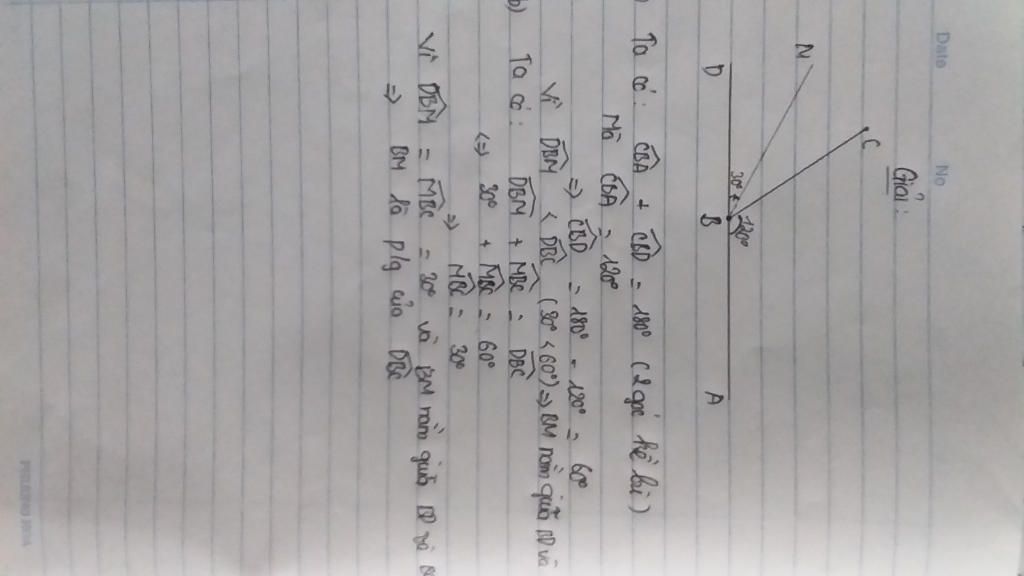 Date No
Giải:
C
N
120°
30°
D B A
) Ta có: CBA + CBD = 180° (2 góc kề bù)
Mà CBA = 120°
=> CBD = 180° - 120° = 60°
Vì DBM < DBC (30° < 60°) => BM nằm giữa BD và
b) Ta có: DBM + MBC = DBC
<=> 30° + MBC = 60°
=> MBC = 30°
Vì DBM = MBC = 30° và BM nằm giữa BD và B
=> BM là p/g của DBC